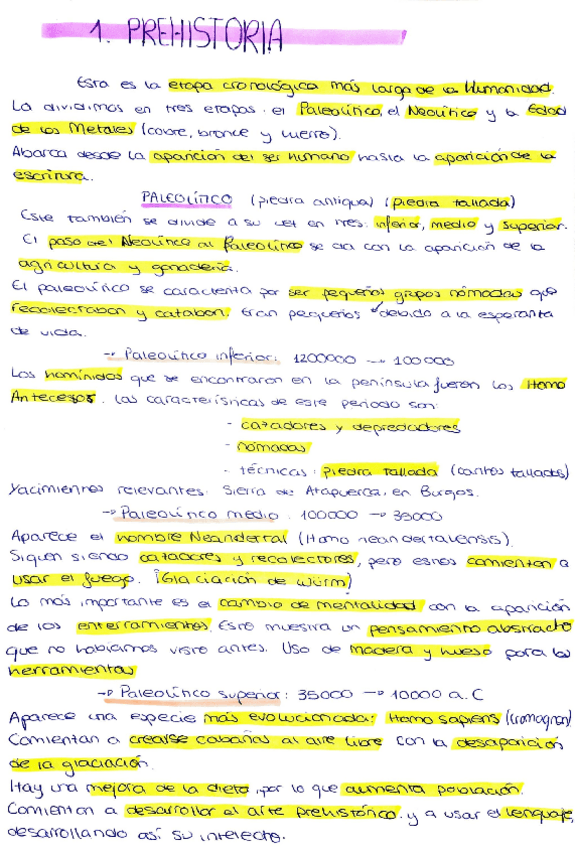 1. PREHISTORIA
Esta es la etapa cronológica más larga de la Humanidad.
La dividimos en tres etapas: el Paleolítico, el Neolítico y la Edad
de los Metales (cobre, bronce y hierro).
Abarca desde la aparición del ser humano hasta la aparición de la
escritura.
PALEOLÍTICO (piedra antigua) (piedra tallada)
Este también se divide a su vez en tres: inferior, medio y superior.
El paso del Neolítico al Paleolítico se da con la aparición de la
agricultura y ganadería.
El paleolítico se caracteriza por ser pequeños grupos nómadas que
recolectaban y cazaban. Eran pequeños debido a la esperanza
de vida.
→ Paleolítico inferior: 1200000 → 100000
Los homínidos que se encontraron en la península fueron los Homo
Antecesor. Las características de este periodo son:
- cazadores y depredadores
- nómadas
- técnicas: piedra tallada (cantos tallados)
Yacimientos relevantes: Sierra de Atapuerca, en Burgos.
→ Paleolítico medio: 100000 → 35000
Aparece el hombre Neandertal (Homo neandertalensis).
Siguen siendo cazadores y recolectores, pero estos comienzan a
usar el fuego. (Glaciación de Würm)
Lo más importante es el cambio de mentalidad con la aparición
de los enterramientos. Esto muestra un pensamiento abstracto
que no habíamos visto antes. Uso de madera y hueso para las
herramientas
→ Paleolítico superior: 35000 → 10000 a.C
Aparece una especie más evolucionada: Homo sapiens (cromagnon)
Comienzan a crearse cabañas al aire libre con la desaparición
de la glaciación.
Hay una mejora de la dieta, por lo que aumenta población.
Comienzan a desarrollar el arte prehistórico y a usar el lenguaje,
desarrollando así su intelecto.